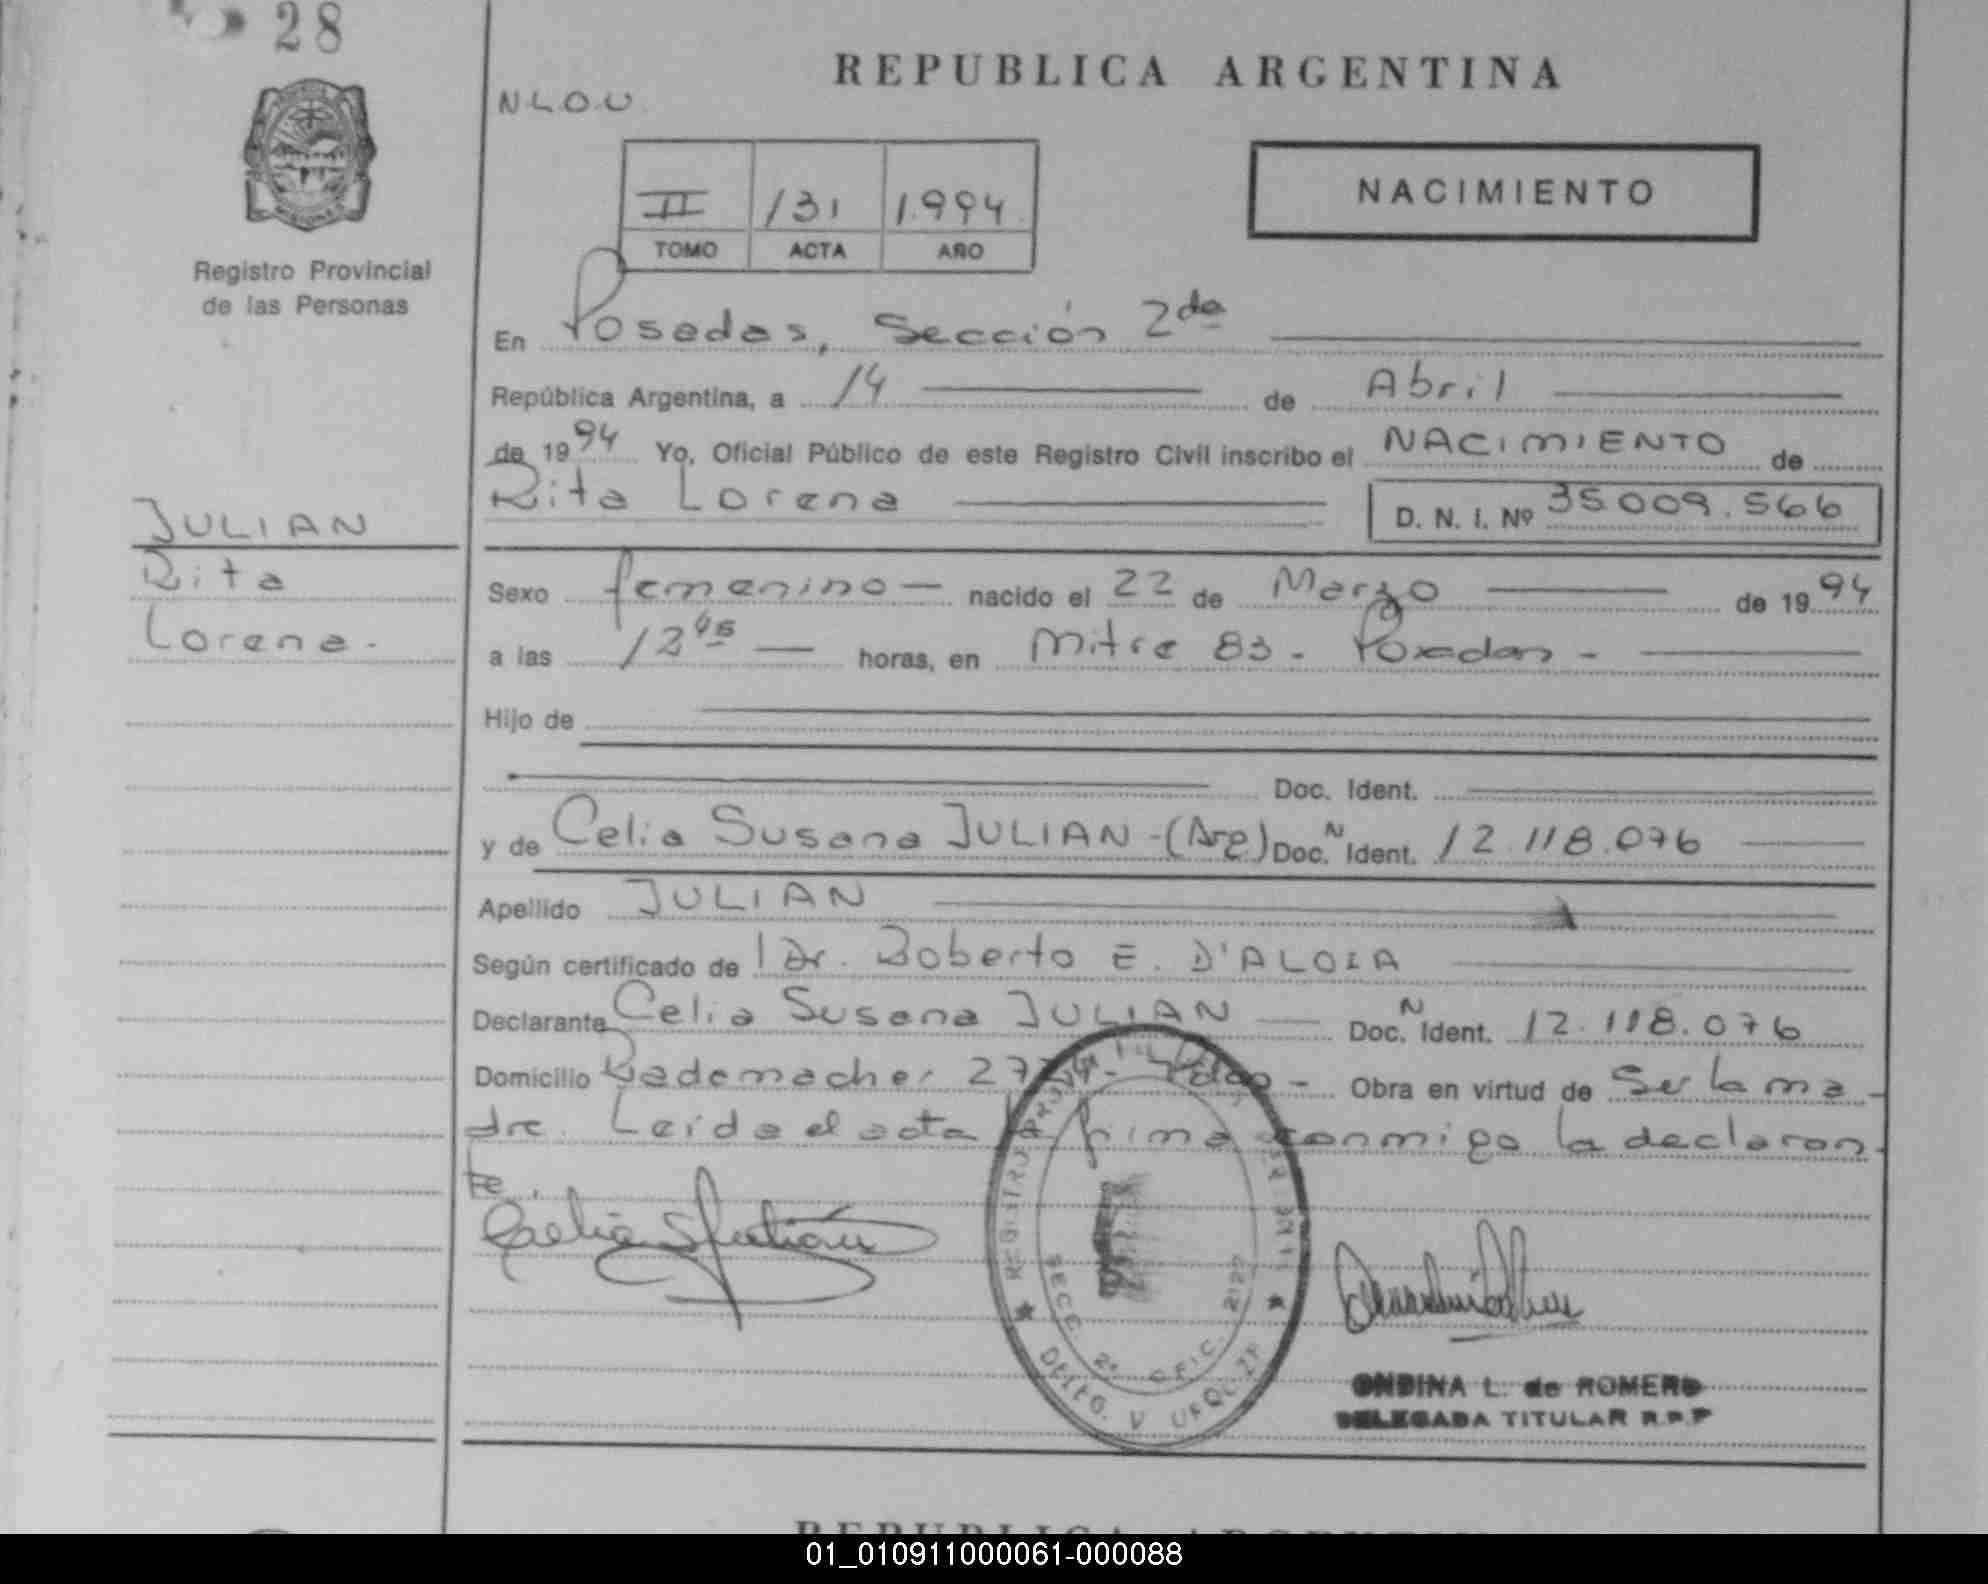 28
REPUBLICA ARGENTINA
N.L.O.U.
NACIMIENTO
II 131 1.994
TOMO ACTA AÑO
MISIONES
Registro Provincial
de las Personas
En Posadas, Sección 2da
República Argentina, a 14 de Abril
de 1994 Yo, Oficial Público de este Registro Civil inscribo el NACIMIENTO de
Rita Lorena D. N. I. Nº 35.009.566
JULIAN
Rita
Lorena.
Sexo femenino nacido el 22 de Marzo de 1994
a las 12 45 horas, en Mitre 83 - Posadas -
Hijo de
Doc. Ident.
y de Celia Susana JULIAN - (Arg) Doc. N Ident. 12.118.076
Apellido JULIAN
Según certificado de Dr. Roberto E. D'ALOIA
Declarante Celia Susana JULIAN Doc. N Ident. 12.118.076
Domicilio Rademacher - Obra en virtud de Ser la ma-
dre. Leída el acta la firma conmigo la declaran-
te.
Celia S Julián
REGISTRO
SECC. 2ª OFIC.
ONDINA L. de ROMERO
DELEGADA TITULAR R.P.P
REPUBLICA ARGENTINA
01_010911000061-000088